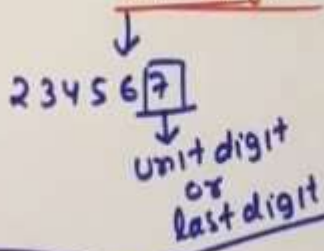 234567
unit digit
or
last digit